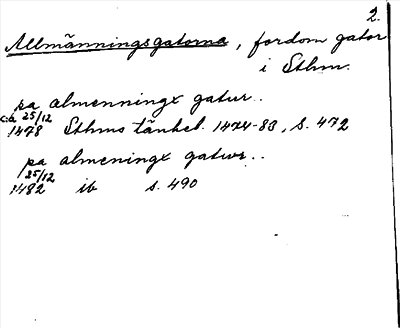 2.
Allmänningsgatorna, fordom gator
i Sthm.
pa almenningx gatur..
c:a 25/12
1478 Sthms tänkeb. 1474-83, s. 472
pa almeningx gatwr..
25/12
1482 ib s. 490